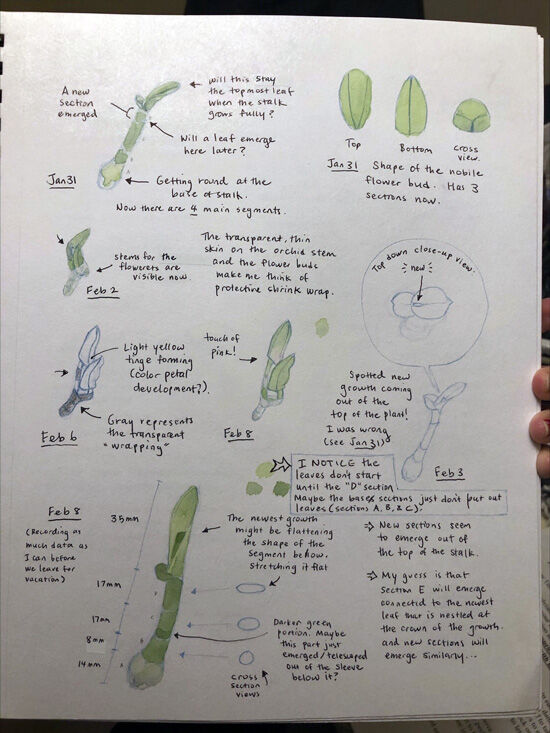 A new
section
emerged
will this stay
the topmost leaf
when the stalk
grows fully?
Will a leaf emerge
here later?
Jan 31
Getting round at the
base of stalk.
Now there are 4 main segments.
Top
Bottom
cross
view.
Jan 31
Shape of the nobile
flower bud. Has 3
sections now.
stems for the
flowerets are
visible now.
Feb 2
The transparent, thin
skin on the orchid stem
and the flower buds
make me think of
protective shrink wrap.
Top down close-up view.
new
Light yellow
tinge forming
(color petal
development?).
Gray represents
the transparent
"wrapping"
Feb 6
touch of
pink!
Feb 8
Spotted new
growth coming
out of the
top of the plant!
I was wrong
(see Jan 31)
Feb 3
I NOTICE the
leaves don't start
until the "D" section
Maybe the base sections just don't put out
leaves (sections A, B, & C).
Feb 8
(Recording as
much data as
I can before
we leave for
vacation)
35mm
17mm
17mm
8mm
14mm
D
C
B
A
The newest growth
might be flattening
the shape of the
segment below.
Stretching it flat
Darker green
portion. Maybe
this part just
emerged/telescoped
out of the sleeve
below it?
cross
section
views
⇒ New sections seem
to emerge out of
the top of the stalk.
⇒ My guess is that
section E will emerge
connected to the newest
leaf that is nestled at
the crown of the growth.
and new sections will
emerge similarly...